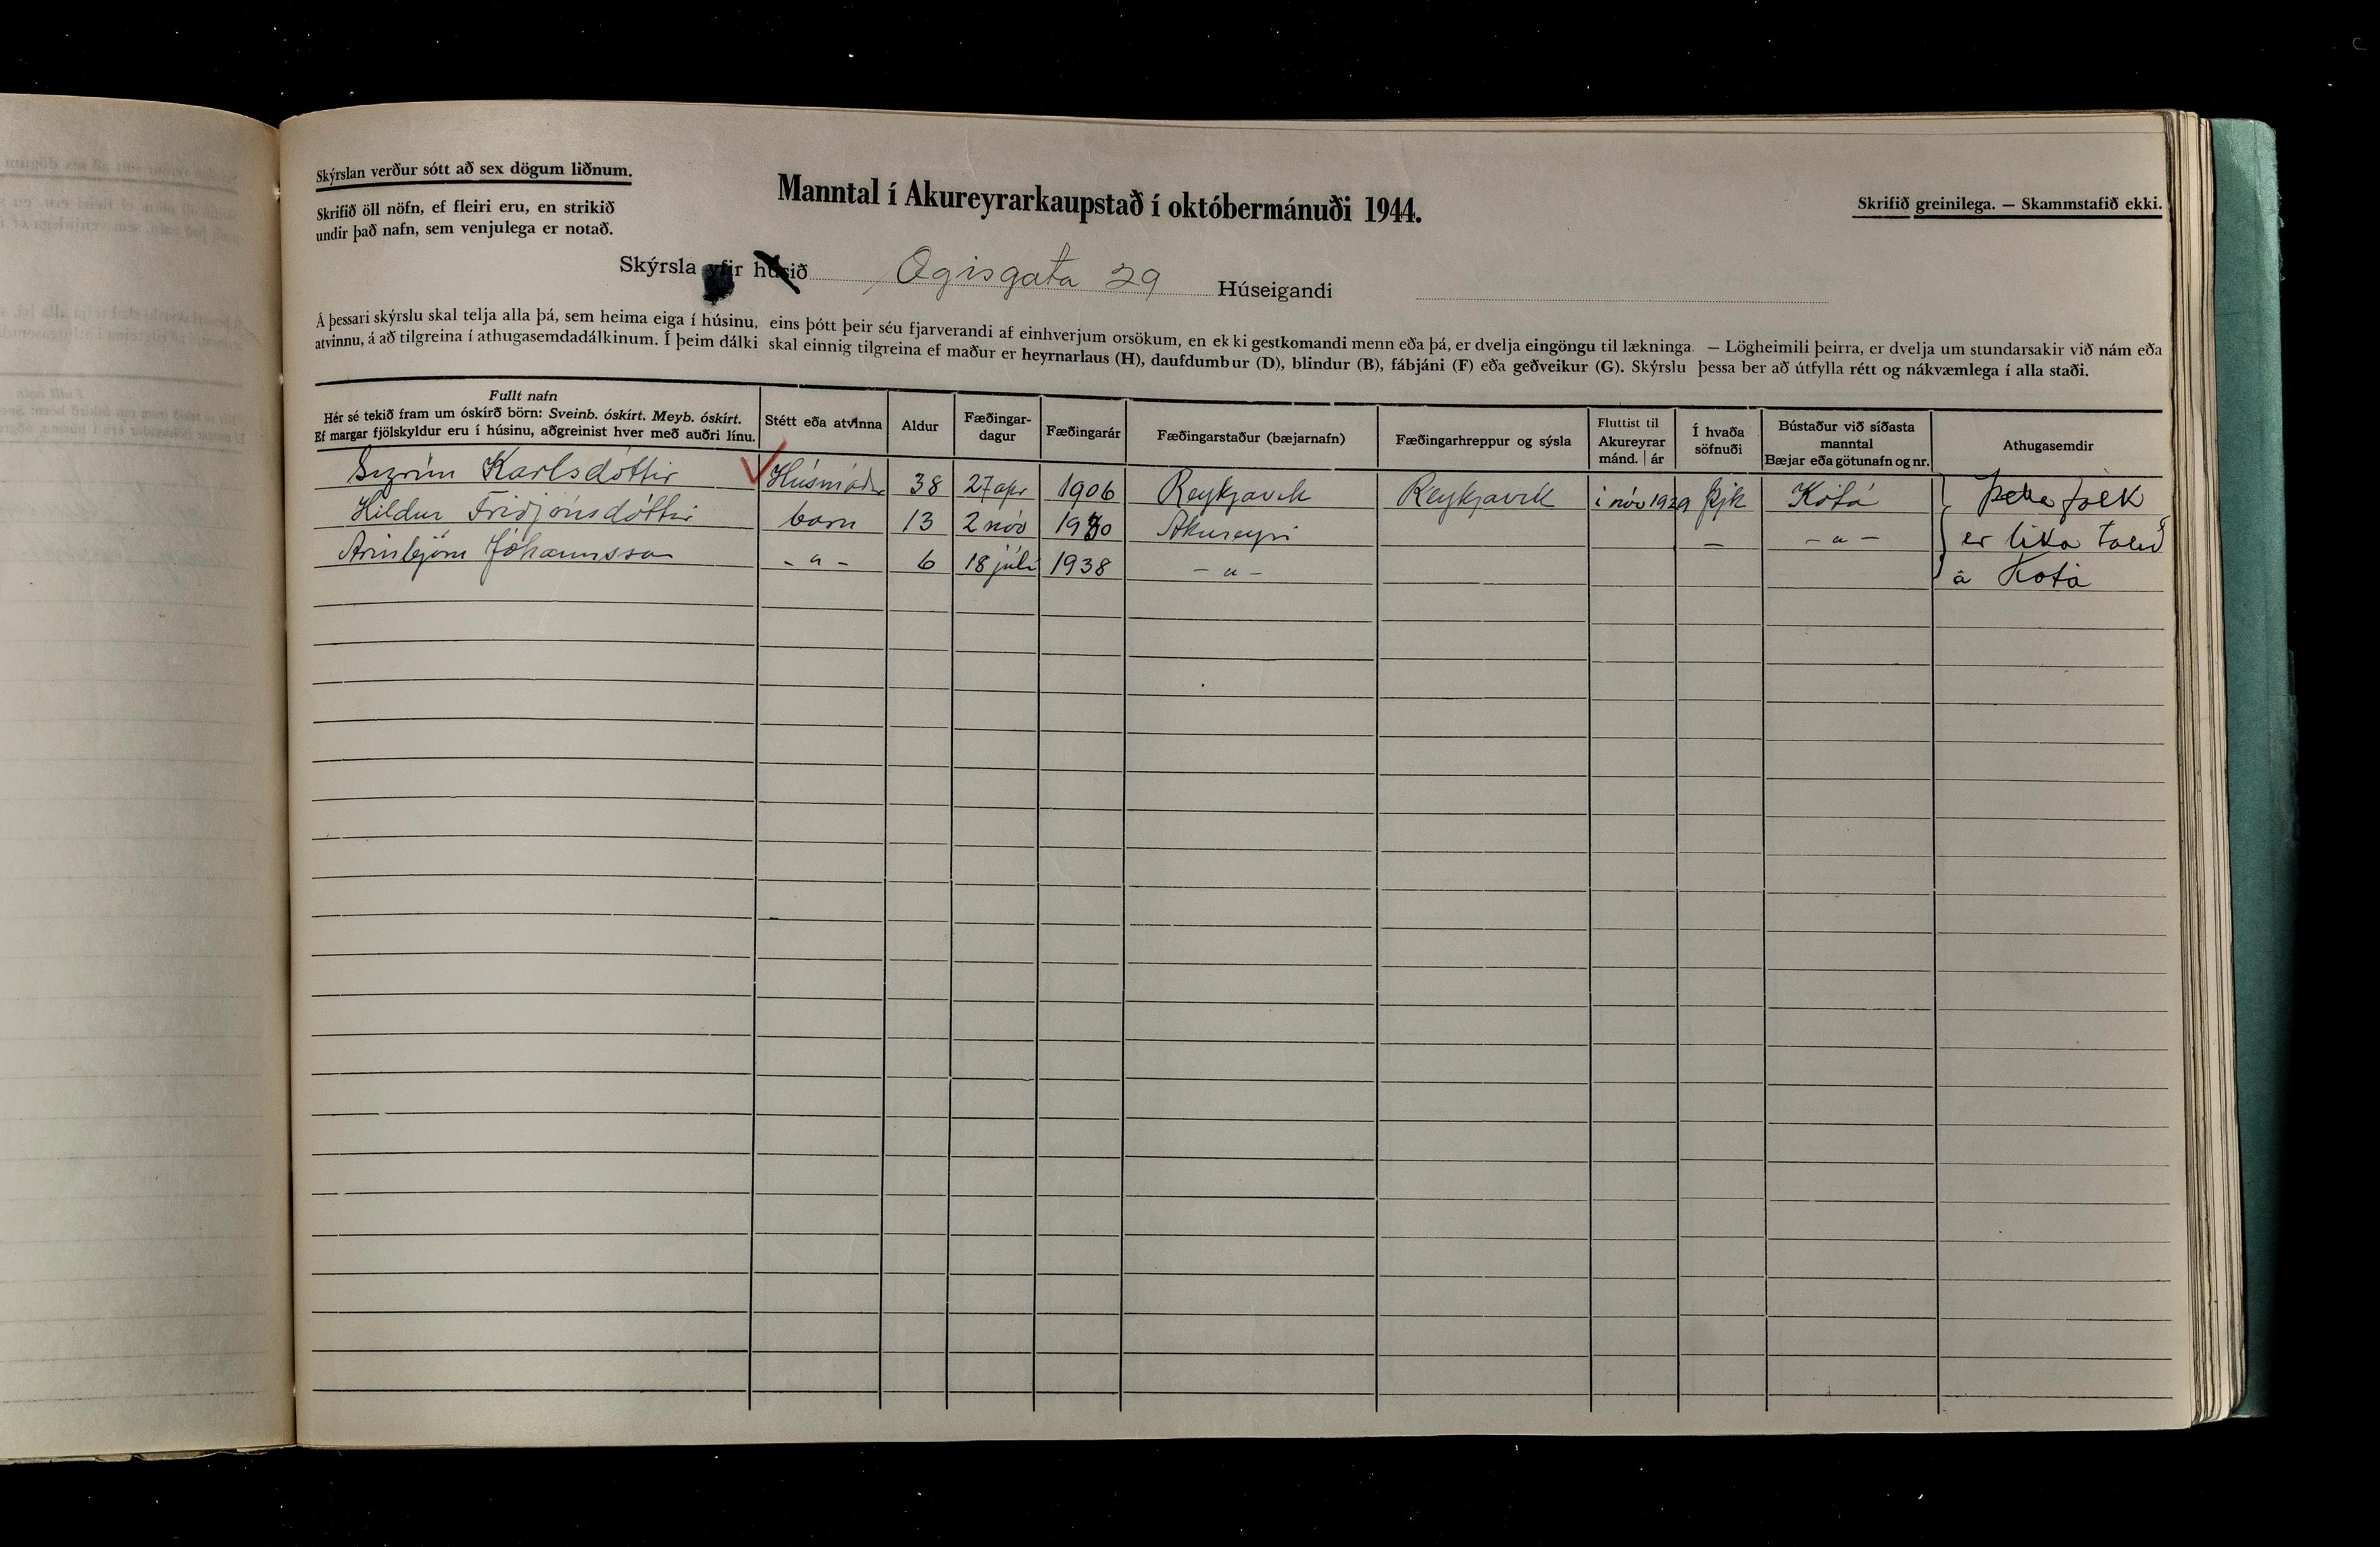 Skýrslan verður sótt að sex dögum liðnum.
Skrifið öll nöfn, ef fleiri eru, en strikið
undir það nafn, sem venjulega er notað.
Manntal í Akureyrarkaupstað í októbermánuði 1944.
Skrifið greinilega. — Skammstafið ekki.
Skýrsla yfir húsið Ægisgata 29 Húseigandi
Á þessari skýrslu skal telja alla þá, sem heima eiga í húsinu, eins þótt þeir séu fjarverandi af einhverjum orsökum, en ekki gestkomandi menn eða þá, er dvelja eingöngu til lækninga. — Lögheimili þeirra, er dvelja um stundarsakir við nám eða
atvinnu, á að tilgreina í athugasemdadálkinum. Í þeim dálki skal einnig tilgreina ef maður er heyrnarlaus (H), daufdumbur (D), blindur (B), fábjáni (F) eða geðveikur (G). Skýrslu þessa ber að útfylla rétt og nákvæmlega í alla staði.
Fullt nafn
Hér sé tekið fram um óskírð börn: Sveinb. óskírt. Meyb. óskírt.
Ef margar fjölskyldur eru í húsinu, aðgreinist hver með auðri línu.
Stétt eða atvinna
Aldur
Fæðingar-
dagur
Fæðingarár
Fæðingarstaður (bæjarnafn)
Fæðingarhreppur og sýsla
Fluttist til
Akureyrar
mánd. | ár
Í hvaða
söfnuði
Bústaður við síðasta
manntal
Bæjar eða götunafn og nr.
Athugasemdir
Sigrún Karlsdóttir Húsmóðir 38 27 apr 1906 Reykjavík Reykjavík í nóv 1929 Þjk Kotá Þetta fólk
Hildur Friðjónsdóttir barn 13 2 nóv 1930 Akureyri — - " - er líka talið
Arinbjörn Jóhannsson - " - 6 18 júlí 1938 - " - á Kotá